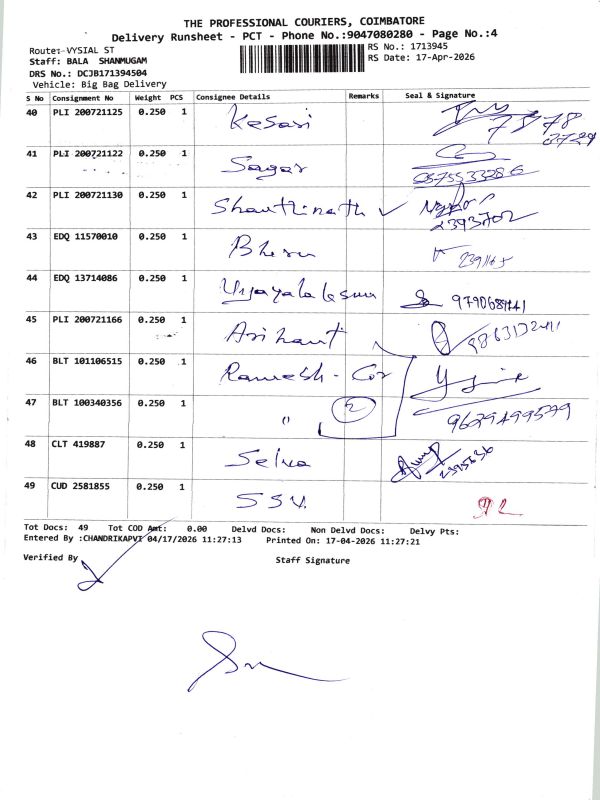 THE PROFESSIONAL COURIERS, COIMBATORE
Delivery Runsheet - PCT - Phone No.:9047080280 - Page No.:4
Route: VYSIAL ST
RS No.: 1713945
Staff: BALA SHANMUGAM
RS Date: 17-Apr-2026
DRS No.: DCJB171394504
Vehicle: Big Bag Delivery
S No Consignment No Weight PCS Consignee Details Remarks Seal & Signature
40 PLI 200721125 0.250 1 Kesari
41 PLI 200721122 0.250 1 Sagar
42 PLI 200721130 0.250 1 Shanthinath ✓ 2393702
43 EDQ 11570010 0.250 1 2391165
44 EDQ 13714086 0.250 1
45 PLI 200721166 0.250 1 Arihant
46 BLT 101106515 0.250 1 Ramesh - Cor
47 BLT 100340356 0.250 1 " 2 9629499579
48 CLT 419887 0.250 1 Selva
49 CUD 2581855 0.250 1 SSV.
Tot Docs: 49 Tot COD Amt: 0.00 Delvd Docs: Non Delvd Docs: Delvy Pts:
Entered By :CHANDRIKAPVT 04/17/2026 11:27:13 Printed On: 17-04-2026 11:27:21
Verified By
Staff Signature